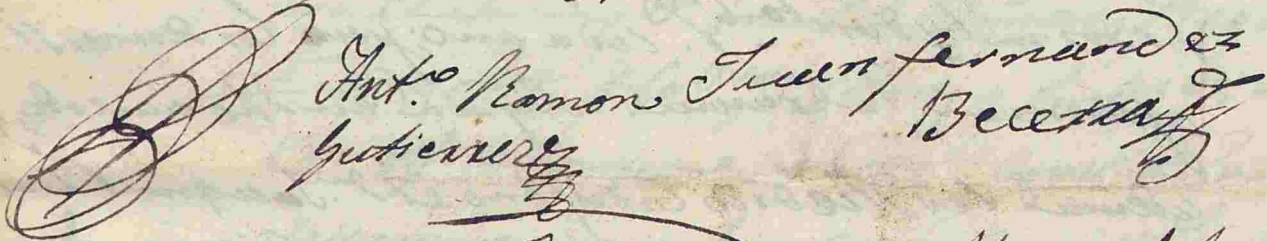 Ant.º Ramon
Gutierrerez
Juan fernandez
Becerra